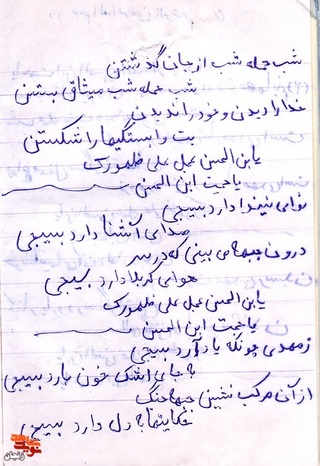 شب حمله شب از جان گذشتن
شب حمله شب میثاق بستن
خدا را دیدن و خود را ندیدن
بت وابستگیها را شکستن
یابن الحسن عجل علی ظهورک
یا حجت ابن الحسن
نوای نینوا دارد بسیجی
صدای آشنا دارد بسیجی
درون جبهه می بینی که در سر
هوای کربلا دارد بسیجی
یابن الحسن عجل علی ظهورک
یا حجت ابن الحسن
ز مهدی چونکه یاد آرد بسیجی
به جای اشک خون بارد بسیجی
از آن مرکب نشین جبهه جنگ
شکایتها به دل دارد بسیجی